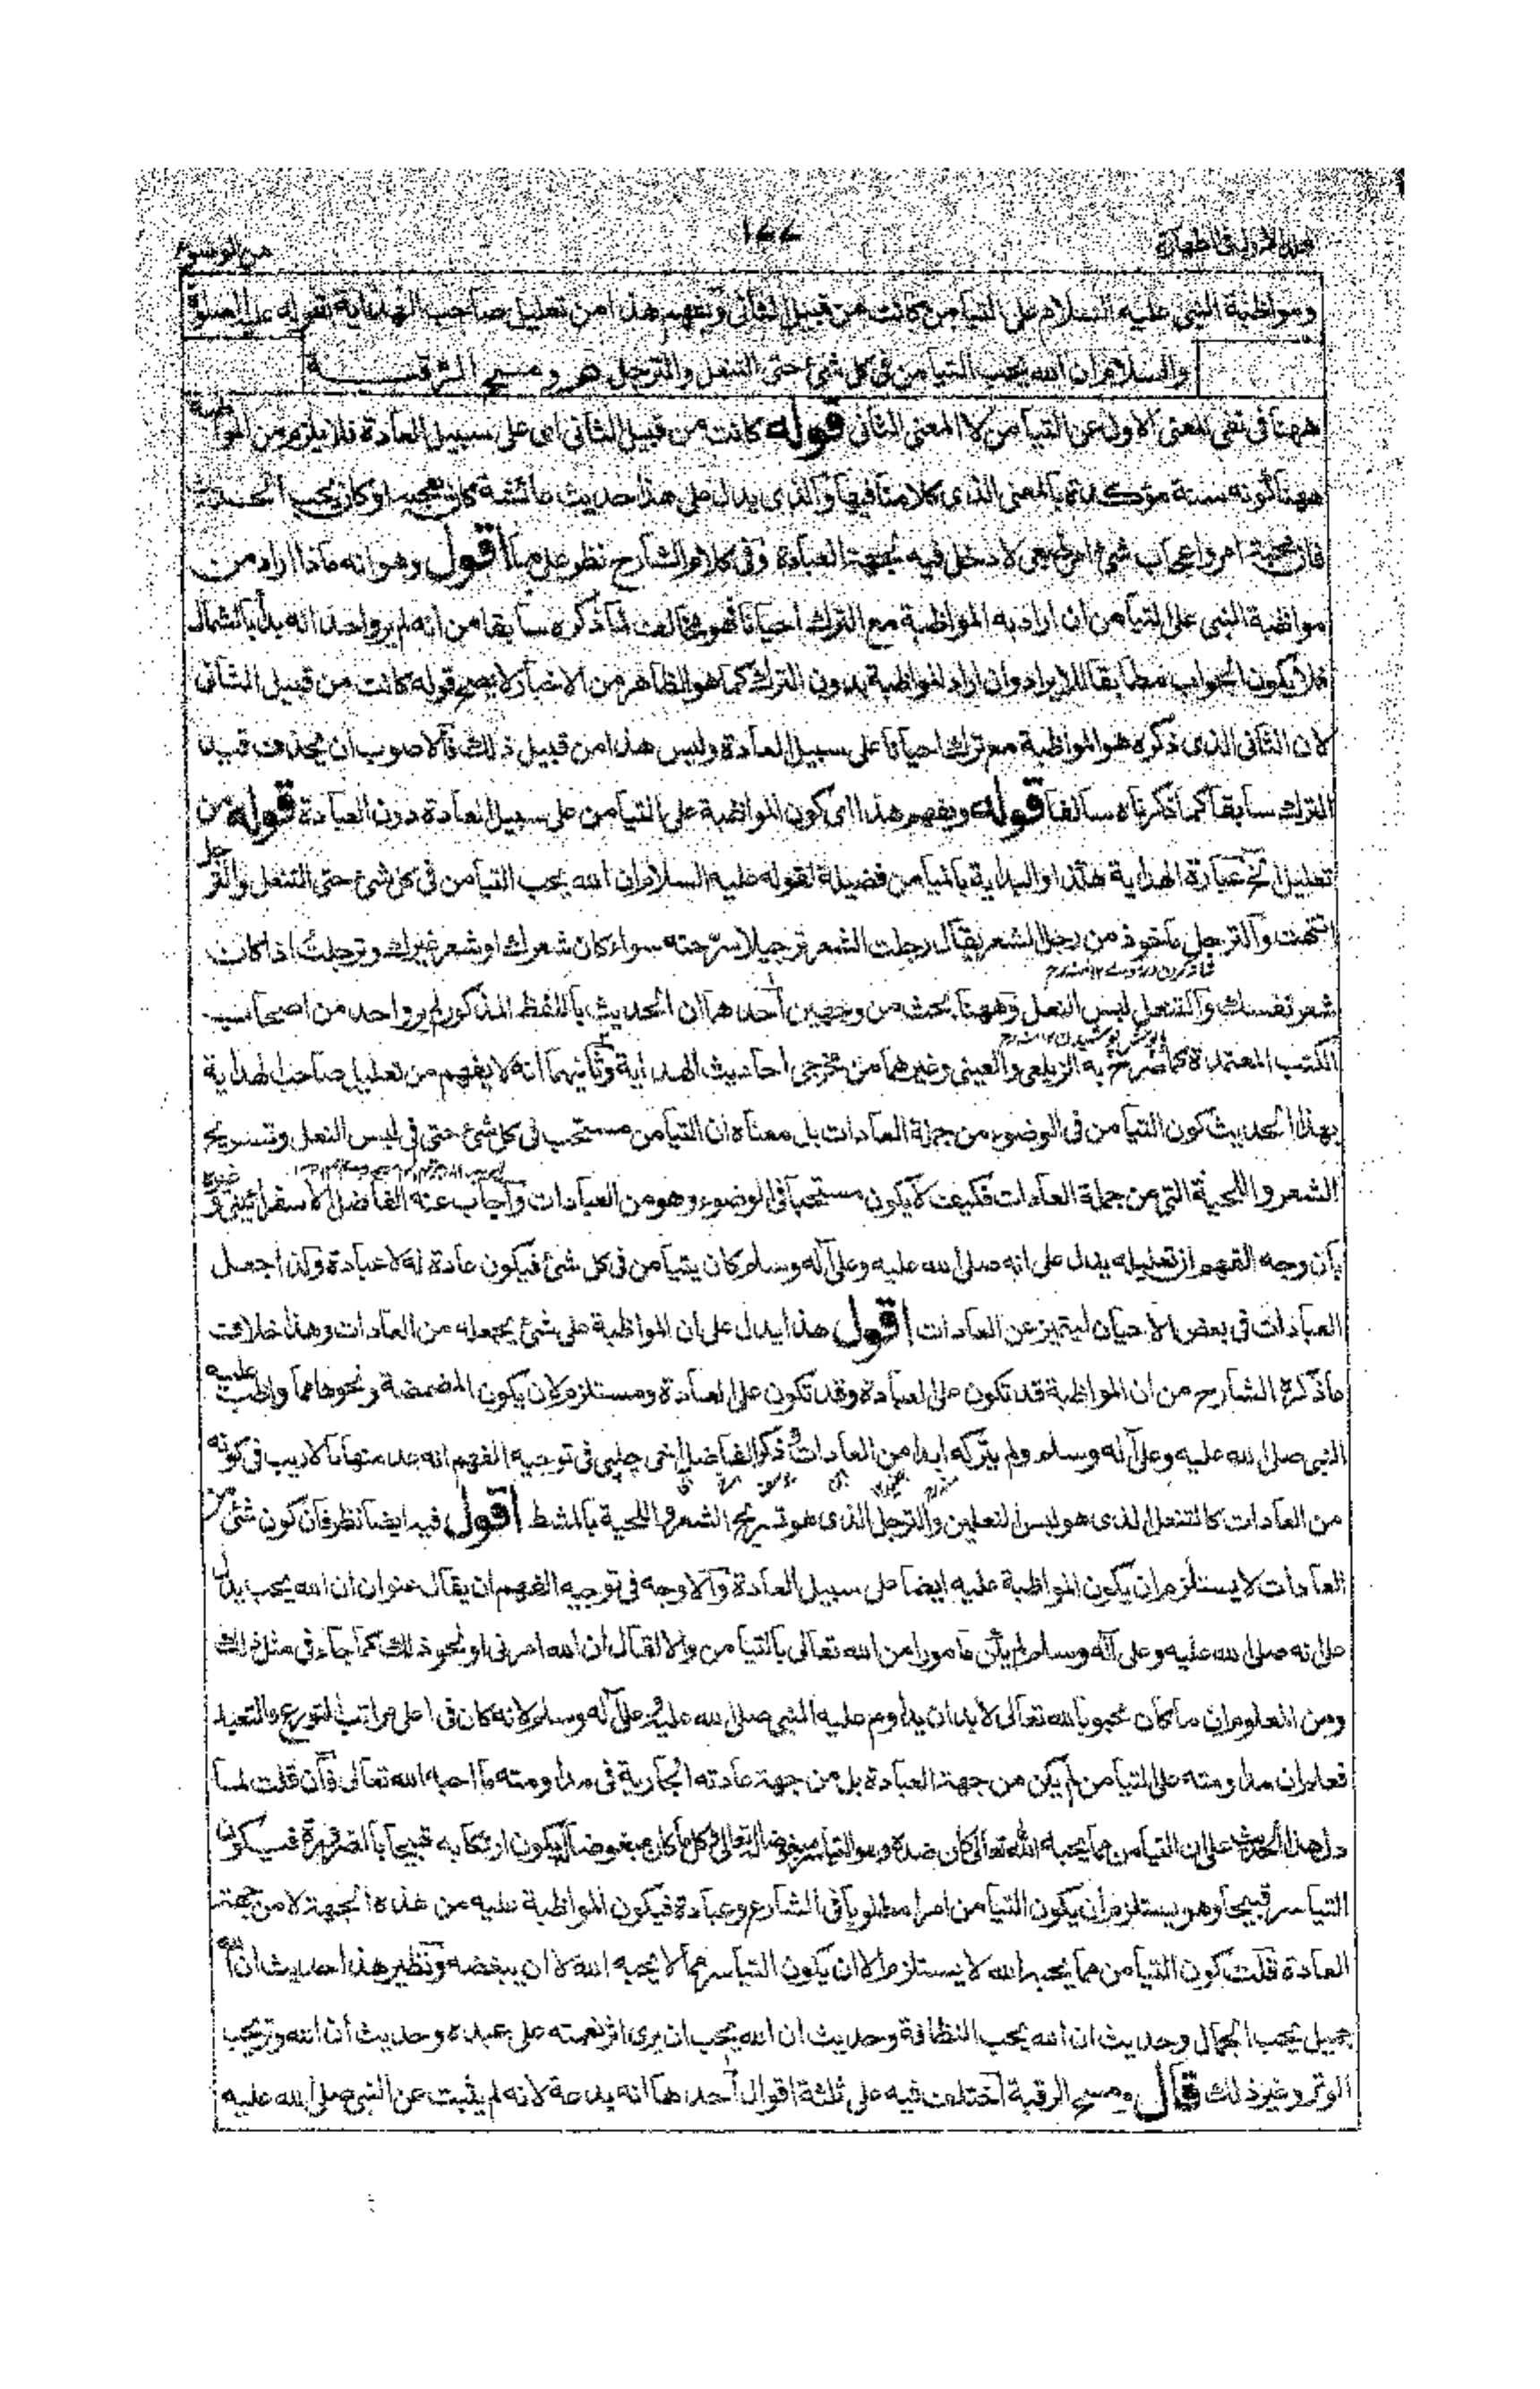 ١٧٧
ومواظبة النبي عليه السلام على التيامن كانت من قبيل الثاني ويفهم هذا من تعليل صاحب الهداية بقوله عليه الصلوة
والسلام ان الله يحب التيامن في كل شئ حتى التنعل والترجل هر ومسح الرقبة
ههنا في نفي المعنى الاول عن التيامن لا المعنى الثاني قوله كانت من قبيل الثاني اي على سبيل العادة فلا يلزم من المواظبة
ههنا كونه سنة مؤكدة بالمعنى الذي كلامنا فيها والذي يدل على هذا حديث عائشة كان يعجبه او كان يحب الحديث
فان محبة امر واعجاب شئ امر طبعي لا دخل فيه لجهة العبادة وفي كلام الشارح نظر على ما اقول وهو انه ماذا اراد من
مواظبة النبي على التيامن ان اراد به المواظبة مع الترك احيانا فهو مخالف لما ذكره سابقا من انه لم يرو احد انه بدأ بالشمال
فلا يكون الجواب مطابقا للايراد وان اراد المواظبة بدون الترك كما هو الظاهر من الاخبار لا يصح قوله كانت من قبيل الثاني
لان الثاني الذي ذكره هو المواظبة مع ترك احيانا على سبيل العادة وليس هذا من قبيل ذلك فالاصوب ان يحذف قيد
الترك سابقا كما ذكرناه سالفا قوله ويفهم هذا اي كون المواظبة على التيامن على سبيل العادة دون العبادة قوله من
تعليل الخ عبارة الهداية هكذا والبداية بالميامن فضيلة لقوله عليه السلام ان الله يحب التيامن في كل شئ حتى التنعل والترجل
انتهت والترجل ماخوذ من رجل الشعر يقال رجلت الشعر ترجيلا سرحته سواء كان شعرك او شعر غيرك وترجلت اذا كانت
شعر نفسك والتنعل لبس النعل وههنا بحث من وجهين احدهما ان الحديث باللفظ المذكور لم يرو احد من اصحاب
الكتب المعتمدة كما صرح به الزيلعي والعيني وغيرهما من مخرجي احاديث الهداية وثانيهما انه لا يفهم من تعليل صاحب الهداية
بهذا الحديث كون التيامن في الوضوء من جملة العادات بل معناه ان التيامن مستحب في كل شئ حتى في لبس النعل وتسريح
الشعر واللحية التي من جملة العادات فكيف لا يكون مستحبا في الوضوء وهو من العبادات واجاب عنه الفاضل الاسفرائيني وغيره
بان وجه الفهم ان تعليله يدل على انه صلى الله عليه وعلى آله وسلم كان يتيامن في كل شئ فيكون عادة له لا عبادة ولذا جعل
العبادات في بعض الاحيان ليتميز عن العادات اقول هذا يدل على ان المواظبة على شئ يجعله من العادات وهذا خلاف
ما ذكره الشارح من ان المواظبة قد تكون على العبادة وقد تكون على العادة ومستلزم لان يكون المضمضة ونحوها مما واظب عليه
النبي صلى الله عليه وعلى آله وسلم ولم يتركه ابدا من العادات وذكر الفاضل اخي چلپي في توجيه الفهم انه عد منها ما لا ريب في كونه
من العادات كالتنعل الذي هو لبس النعلين والترجل الذي هو تسريح الشعر واللحية بالمشط اقول فيه ايضا نظر فان كون شئ من
العادات لا يستلزم ان يكون المواظبة عليه ايضا على سبيل العادة والاوجه في توجيه الفهم ان يقال عنوان ان الله يحب يدل
على انه صلى الله عليه وعلى آله وسلم لم يكن مامورا من الله تعالى بالتيامن والا لقال ان الله امرني او نحو ذلك كما جاء في مثل ذلك
ومن المعلوم ان ما كان محبوبا لله تعالى لا بد ان يداوم عليه النبي صلى الله عليه وعلى آله وسلم لانه كان في اعلى مراتب التورع والتعبد
فعلم ان مداومته على التيامن لم يكن من جهة العبادة بل من جهة عادته الجارية في مداومته ما احبه الله تعالى فان قلت لما
دل هذا الحديث على ان التيامن مما يحبه الله تعالى كان ضده وهو التياسر مبغوضا لله تعالى وكل ما كان مبغوضا له يكون ارتكابه قبيحا بالضرورة فيكون
التياسر قبيحا وهو يستلزم ان يكون التيامن امرا مطلوبا في الشارع وعبادة فيكون المواظبة عليه من هذه الجهة لا من جهة
العادة قلت كون التيامن مما يحبه الله لا يستلزم الا ان يكون التياسر مما لا يحبه الله لا ان يبغضه ونظير هذا حديث ان الله
جميل يحب الجمال وحديث ان الله يحب النظافة وحديث ان الله يحب ان يرى اثر نعمته على عبده وحديث ان الله وتر يحب
الوتر وغير ذلك قال ومسح الرقبة اختلف فيه على ثلثة اقوال احدها انه بدعة لانه لم يثبت عن النبي صلى الله عليه